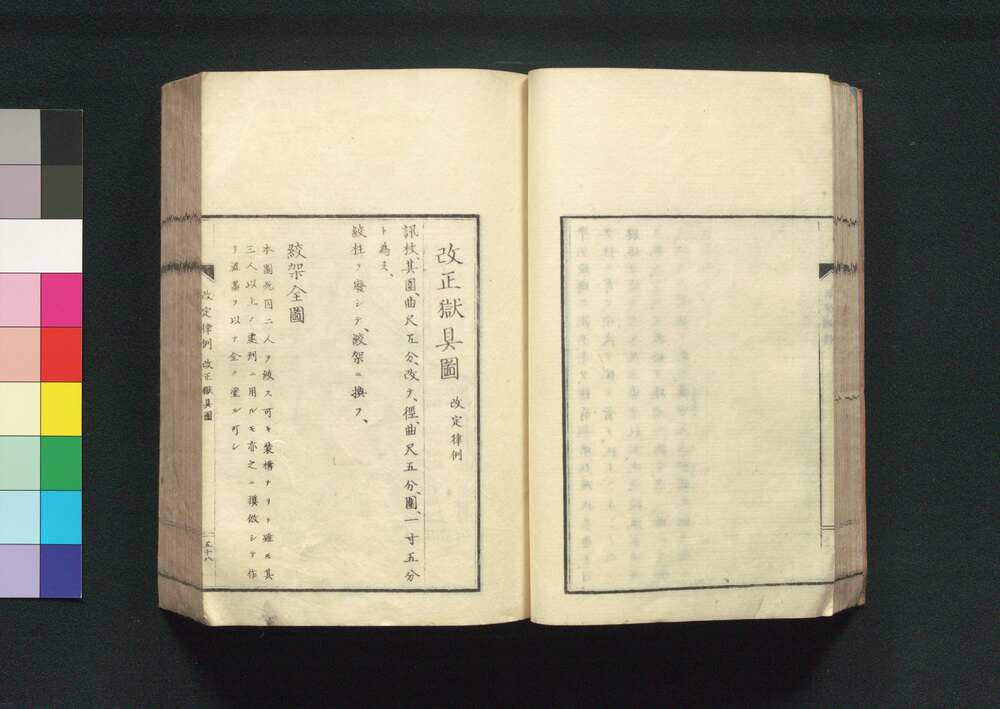 改正獄具圖 改定律例
訊杖、其圍、曲尺五分、改テ、徑、曲尺五分、圍、一寸五分
ト為ス、
絞柱ヲ廢シテ、絞架ニ換フ、
絞架全圖
本圖死囚二人ヲ絞ス可キ裝構ナリト雖モ其
三人以上ノ處刑ニ用ルモ亦之ニ摸倣シテ作
リ渋墨ヲ以テ全ク塗ル可シ
改定律例 改正獄具圖
五十八